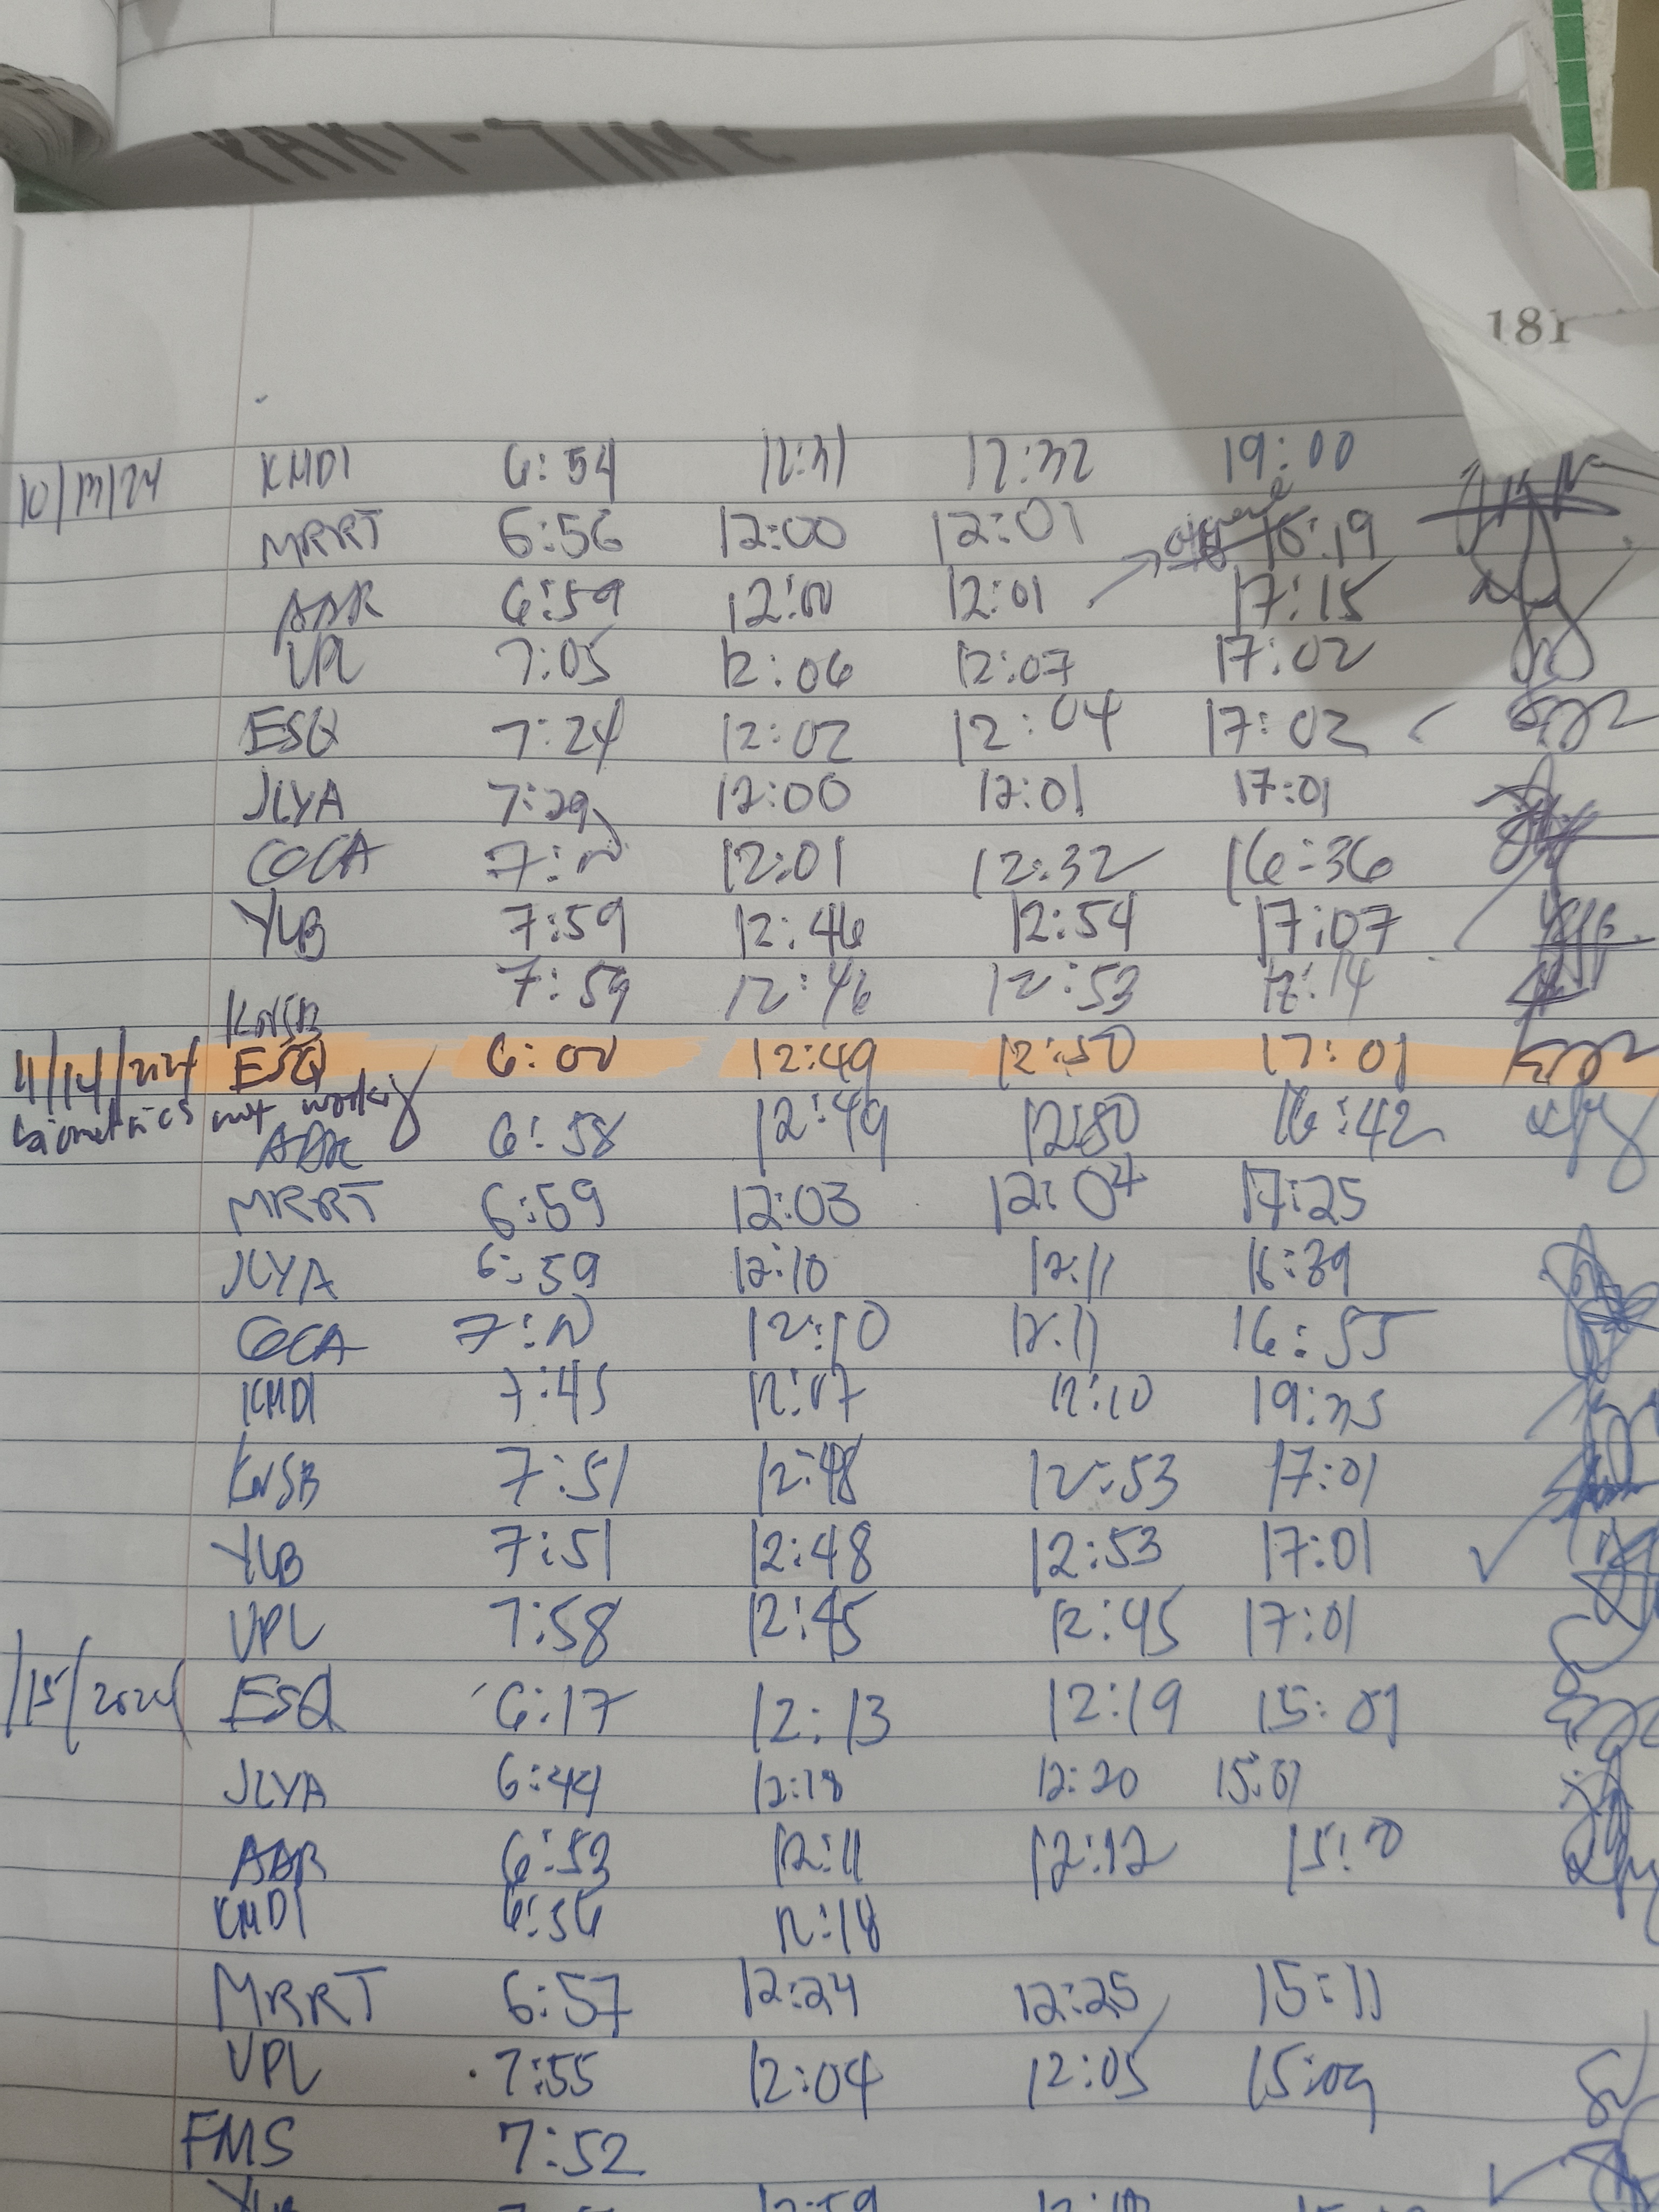 181
10/13/24 KMDI 6:54 12:31 12:32 19:00
MRRT 6:56 12:00 12:01 16:19
AAR 6:59 12:00 12:01 17:15
VPL 7:05 12:06 12:07 17:02
ESQ 7:24 12:02 12:04 17:02
JLYA 7:29 12:00 12:01 17:01
COCA 12:01 12:32 16:36
YLB 7:59 12:46 12:54 17:07
KNSB 7:59 12:46 12:53 17:14
11/14/2024 ESQ 6:00 12:49 12:50 17:01
biometrics not working
6:58 12:49 12:50 16:42
MRRT 6:59 12:03 12:04 17:25
JLYA 6:59 12:10 12:11 16:39
COCA 12:10 12:11 16:55
KMDI 7:45 12:07 12:10 19:35
KNSB 7:51 12:48 12:53 17:01
YLB 7:51 12:48 12:53 17:01
VPL 7:58 12:45 12:45 17:01
/15/2024 ESQ 6:17 12:13 12:19 15:01
JLYA 6:44 12:18 12:20 15:01
6:53 12:11 12:12
KMDI 6:56 12:18
MRRT 6:57 12:24 12:25 15:11
VPL 7:55 12:04 12:05 15:09
FMS 7:52
12:59